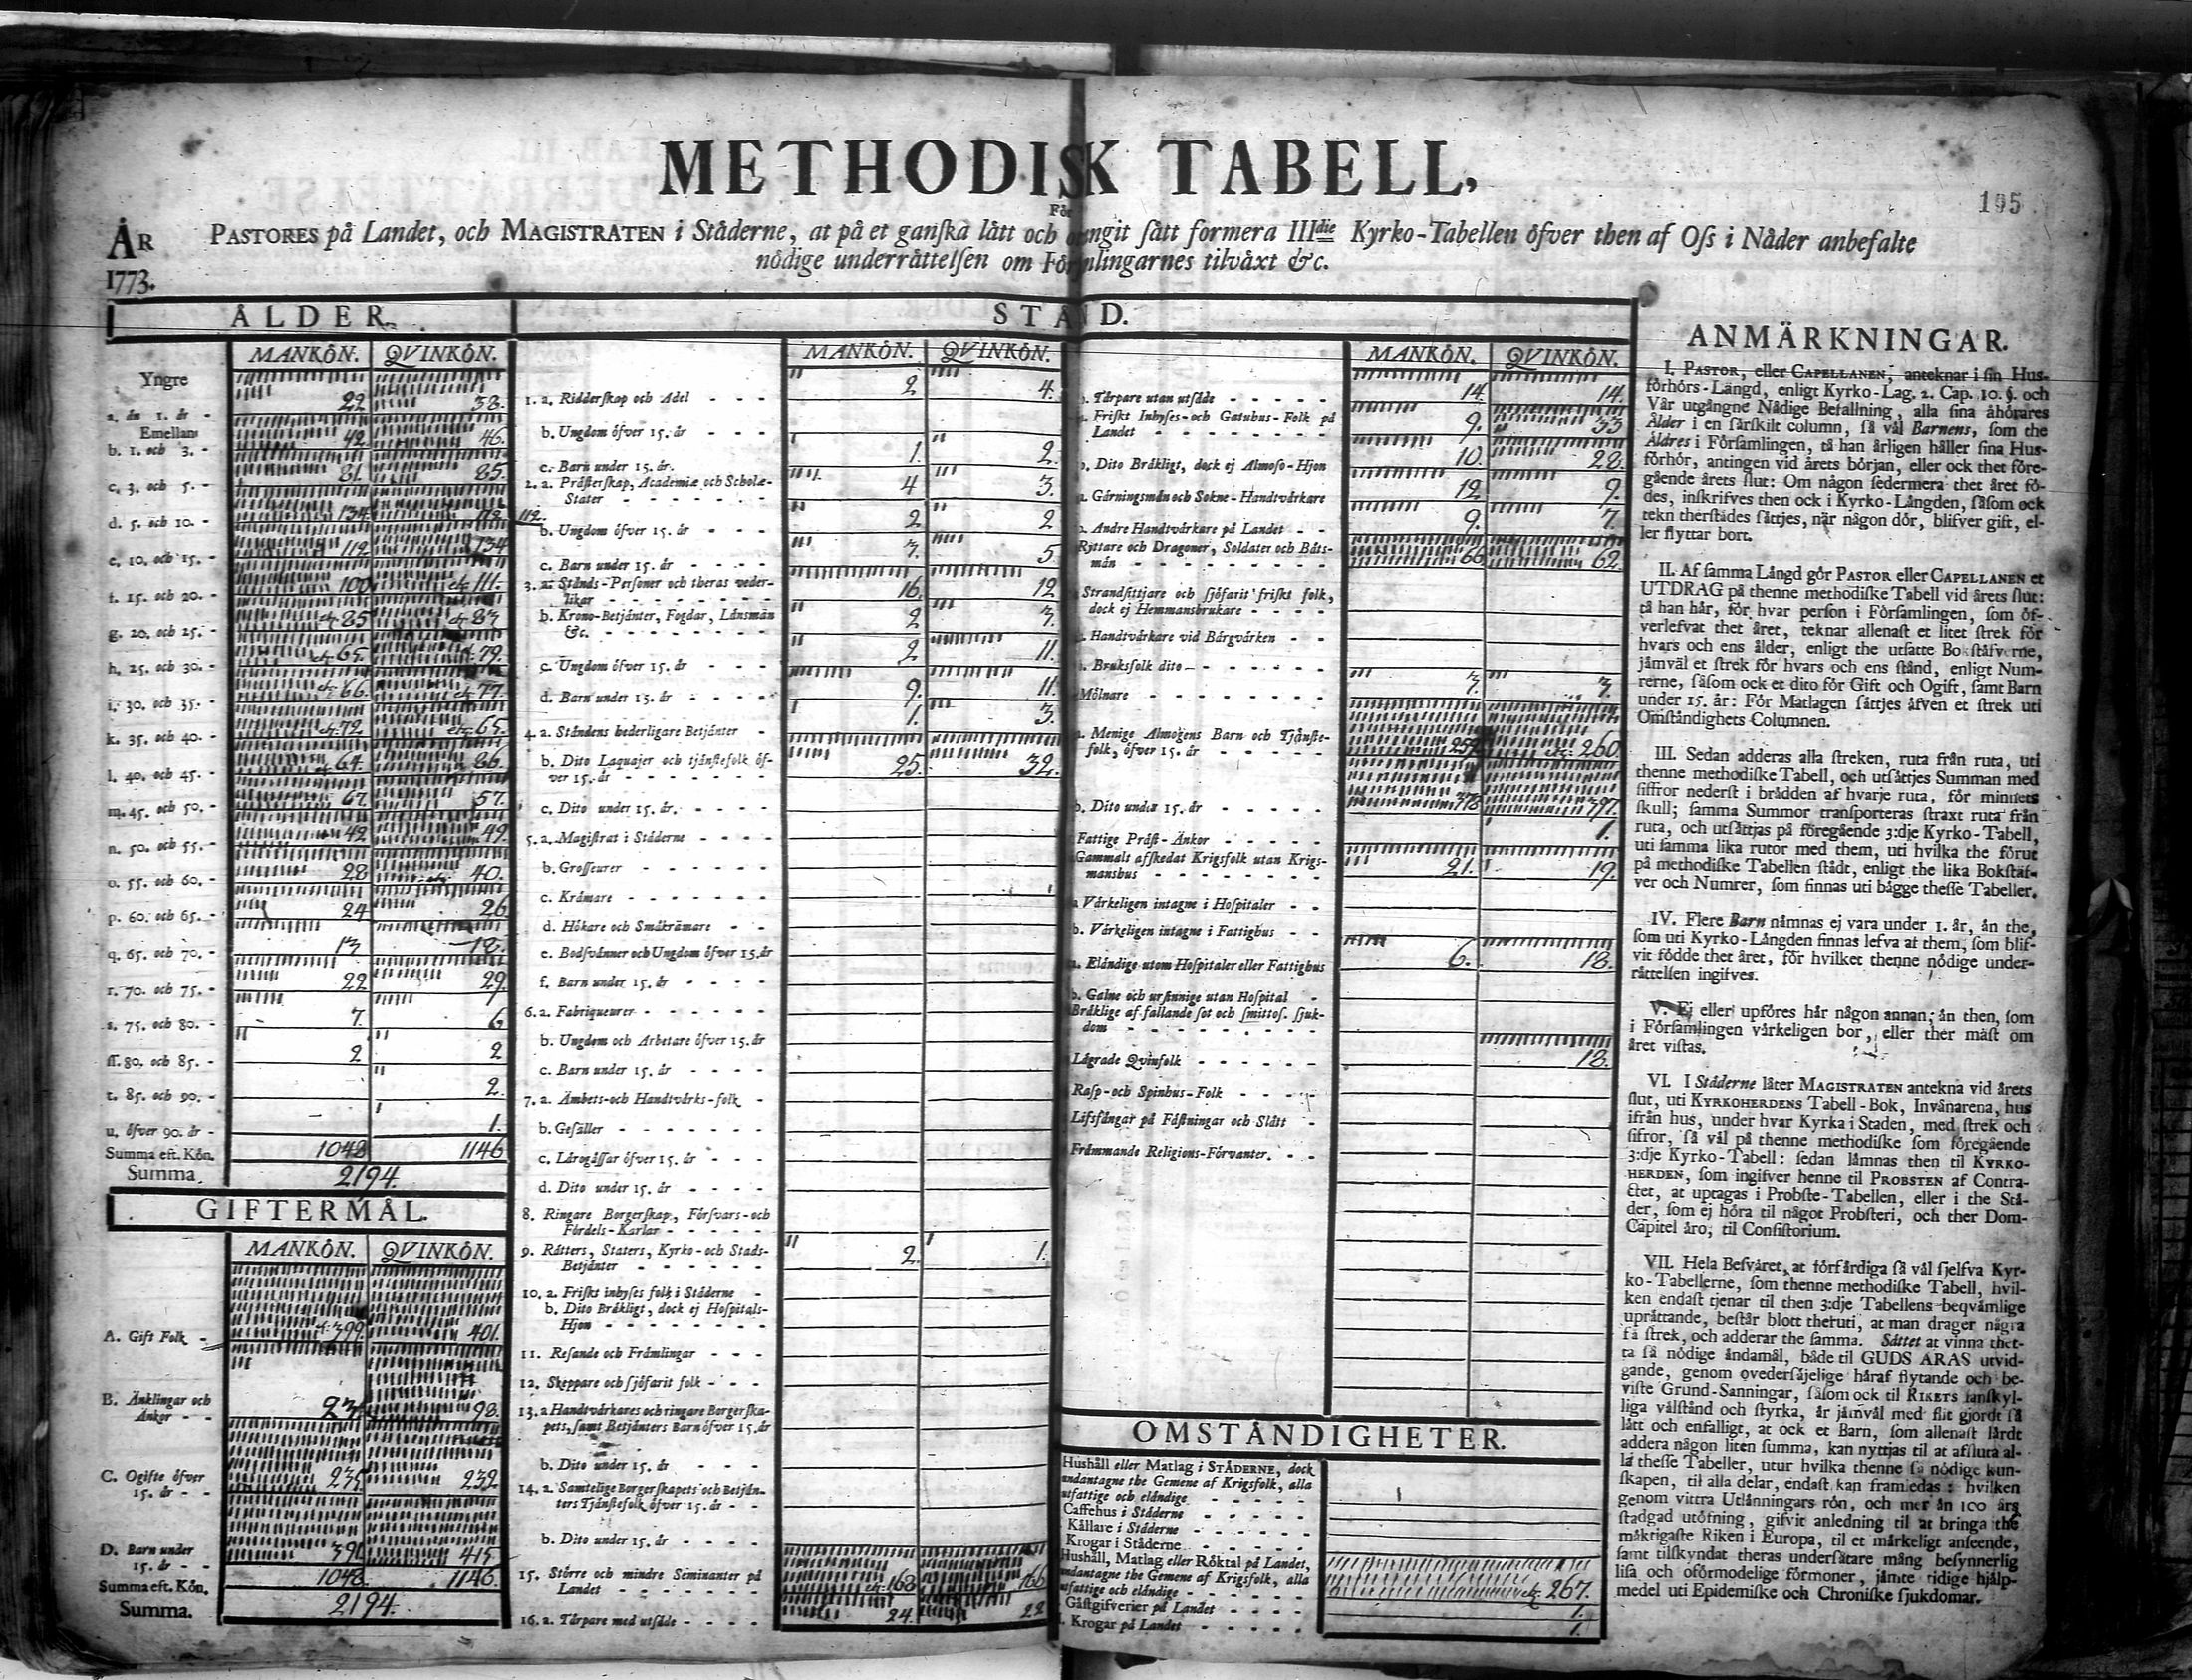 METHODISK TABELL,
195
För
ÅR
1773.
PASTORES på Landet, och MAGISTRATEN i Ståderne, at på et ganska lått och ... sått formera IIIdie Kyrko-Tabellen ôfver then af Oss i Nåder anbefalte
nôdige underråttelsen om Fôrsamlingarnes tilvåxt &c.
ÅLDER.
MANKÔN. QVINKÔN.
Yngre
a, ån 1. år - 22 38.
Emellan
b. 1. och 3. - 42. 46.
c. 3. och 5. - 81. 85.
d. 5. och 10. - 134 112.
112.
e. 10. och 15. - 112 134
f. 15. och 20. - 100 111.
g. 20. och 25. - 85 83
h. 25. och 30. - 65. 79.
i. 30. och 35. - 66. 77.
k. 35. och 40. - 72 65.
l. 40. och 45. - 64. 86.
m. 45. och 50. - 67. 57.
n. 50. och 55. - 42 49
o. 55. och 60. - 28 40.
p. 60. och 65. - 24 26
q. 65. och 70. - 13 18.
r. 70. och 75. - 22 29
s. 75. och 80. - 7. 6
ss. 80. och 85. - 2 2
t. 85. och 90. - 2.
u. ôfver 90. år - 1.
Summa eft. Kôn. 1048 1146
Summa. 2194.
GIFTERMÅL.
MANKÔN. QVINKÔN.
A. Gift Folk - 399. 401.
B. Änklingar och
Änkor - - 23. 98.
C. Ogifte ôfver
15. år - - 235. 232.
D. Barn under
15. år - - 391. 415.
Summa eft. Kôn. 1048. 1146.
Summa. 2194.
STÅND.
MANKÔN. QVINKÔN.
1. a. Ridderskap och Adel - - - 2 4.
b. Ungdom ôfver 15. år - - -
c. Barn under 15. år. 1. 2.
2. a. Pråsterskap, Academiæ och Scholæ-
Stater - - - - - 4 3.
b. Ungdom ôfver 15. år - - - 2 2
c. Barn under 15. år - - - - 3. 5
3. a. Stånds-Personer och theras veder-
likar - - - - - 16. 12
b. Krono-Betjånter, Fogdar, Lånsmån
&c. - - - - - - - 2 3.
c. Ungdom ôfver 15. år - - - 2 11.
d. Barn under 15. år - - - - 9. 11.
4. a. Ståndens hederligare Betjånter - 1. 3.
b. Dito Laquajer och tjånstefolk ôf-
ver 15. år - - - - - - - 25. 32.
c. Dito under 15. år. - - - -
5. a. Magistrat i Ståderne - - - -
b. Grosseurer - - - - - -
c. Kråmare - - - - - -
d. Hôkare och Småkråmare - -
e. Bodsvånner och Ungdom ôfver 15. år
f. Barn under 15. år - - - -
6. a. Fabriqueurer - - - - - -
b. Ungdom och Arbetare ôfver 15. år
c. Barn under 15. år - - - -
7. a. Ämbets-och Handtvårks-folk -
b. Gesåller - - - - - - -
c. Lårogåssar ôfver 15. år - - -
d. Dito under 15. år - - - -
8. Ringare Borgerskap, Fôrsvars-och
Fôrdels-Karlar - - - - -
9. Råtters, Staters, Kyrko-och Stads-
Betjånter - - - - - - 2. 1.
10. a. Friskt inhyses folk i Ståderne -
b. Dito Bråkligt, dock ej Hospitals-
Hjon - - - - - - - -
11. Resande och Fråmlingar - - -
12. Skeppare och sjôfarit folk - - -
13. a Handtvårkares och ringare Borgerska-
pets, samt Betjånters Barn ôfver 15. år
b. Dito under 15. år - - -
14. a. Samtelige Borgerskapets och Betjån-
ters Tjånstefolk ôfver 15. år - -
b. Dito under 15. år - - - -
15. Stôrre och mindre Seminanter på
Landet - - - - - - - 168 166
16. a. Tårpare med utsåde - - - - 24. 22
MANKÔN. QVINKÔN.
b. Tårpare utan utsåde - - - - - 14. 14.
Friskt Inhyses-och Gatuhus-Folk på
Landet - - - - - - - 9. 33
b. Dito Bråkligt, dock ej Almoso-Hjon 10. 28.
Gårningsmån och Sokne-Handtvårkare 12 9.
b. Andre Handtvårkare på Landet - - 9. 7.
Ryttare och Dragoner, Soldater och Båts-
mån - - - - - - - 66 62.
Strandsittjare och sjôfarit friskt folk,
dock ej Hemmansbrukare - - - -
Handtvårkare vid Bårgvårken - -
b. Bruksfolk dito - - - - - - -
Môlnare - - - - - - - 3. 3.
a. Menige Almogens Barn och Tjånste-
folk, ôfver 15. år - - - - - 259. 260
b. Dito under 15. år - - - - - 378 397.
Fattige Pråst-Änkor - - - - 1.
Gammalt afskedat Krigsfolk utan Krigs-
manshus - - - - - - - - 21. 19.
a Vårkeligen intagne i Hospitaler - -
b. Vårkeligen intagne i Fattighus - -
a. Elåndige utom Hospitaler eller Fattighus 6. 18.
b. Galne och ursinnige utan Hospital -
Bråklige af fallande sot och smittos. sjuk-
dom - - - - - - - -
Lågrade Qvinfolk - - - - - 18.
Rasp-och Spinhus-Folk - - - -
Lifsfångar på Fåstningar och Slått -
Fråmmande Religions-Fôrvanter. - -
OMSTÅNDIGHETER.
Hushåll eller Matlag i STÅDERNE, dock
undantagne the Gemene af Krigsfolk, alla
utfattige och elåndige - - - - -
Caffehus i Ståderne - - - - -
Kållare i Ståderne - - - - -
Krogar i Ståderne - - - - -
Hushåll, Matlag eller Rôktal på Landet,
undantagne the Gemene af Krigsfolk, alla
utfattige och elåndige - - - - - 267.
Gåstgifverier på Landet - - - - 1.
Krogar på Landet - - - - - 1.
ANMÄRKNINGAR.
I. PASTOR, eller CAPELLANEN, anteknar i sin Hus-
fôrhôrs-Långd, enligt Kyrko-Lag. 2. Cap. 10. §. och
Vår utgångne Nådige Befallning, alla sina åhôrares
Ålder i en sårskilt column, så vål Barnens, som the
Äldres i Fôrsamlingen, tå han årligen håller sina Hus-
fôrhôr, antingen vid årets bôrjan, eller ock thet fôre-
gående årets slut: Om någon sedermera thet året fô-
des, inskrifves then ock i Kyrko-Långden, såsom ock
tekn therstådes såttjes, når någon dôr, blifver gift, el-
ler flyttar bort.
II. Af samma Långd gôr PASTOR eller CAPELLANEN et
UTDRAG på thenne methodiske Tabell vid årets slut:
tå han hår, fôr hvar person i Fôrsamlingen, som ôf-
verlefvat thet året, teknar allenast et litet strek fôr
hvars och ens ålder, enligt the utsatte Bokståfverne,
jåmvål et strek fôr hvars och ens stånd, enligt Num-
rerne, såsom ock et dito fôr Gift och Ogift, samt Barn
under 15. år: Fôr Matlagen såttjes åfven et strek uti
Omståndighets-Columnen.
III. Sedan adderas alla streken, ruta från ruta, uti
thenne methodiske Tabell, och utsåttjes Summan med
siffror nederst i brådden af hvarje ruta, fôr minnets
skull; samma Summor transporteras straxt ruta från
ruta, och utsåttjas på fôregående 3:dje Kyrko-Tabell,
uti samma lika rutor med them, uti hvilka the fôrut
på methodiske Tabellen stådt, enligt the lika Bokståf-
ver och Numrer, som finnas uti bågge thesse Tabeller.
IV. Flere Barn nåmnas ej vara under 1. år, ån the,
som uti Kyrko-Långden finnas lefva af them, som blif-
vit fôdde thet året, fôr hvilket thenne nôdige under-
råttelsen ingifves.
V. Ej eller upfôres hår någon annan, ån then, som
i Fôrsamlingen vårkeligen bor, eller ther måst om
året vistas.
VI. I Ståderne låter MAGISTRATEN antekna vid årets
slut, uti KYRKOHERDENS Tabell-Bok, Invånarena, hus
ifrån hus, under hvar Kyrka i Staden, med strek och
sifror, så vål på thenne methodiske som fôregående
3:dje Kyrko-Tabell: sedan låmnas then til KYRKO-
HERDEN, som ingifver henne til PROBSTEN af Contra-
ctet, at uptagas i Probste-Tabellen, eller i the Stå-
der, som ej hôra til något Probsteri, och ther Dom-
Capitel åro, til Consistorium.
VII. Hela Besvåret, at fôrfårdiga så vål sjelfva Kyr-
ko-Tabellerne, som thenne methodiske Tabell, hvil-
ken endast tjenar til then 3:dje Tabellens beqvåmlige
upråttande, består blott theruti, at man drager några
få strek, och adderar the samma. Såttet at vinna thet-
ta så nôdige åndamål, både til GUDS ÅRAS utvid-
gande, genom ovedersåjelige håraf flytande och be-
viste Grund-Sanningar, såsom ock til RIKETS fanskyl-
liga vålstånd och styrka, år jåmvål med flit gjordt så
lått och enfalligt, at ock et Barn, som allenast lårdt
addera någon liten summa, kan nyttjas til at afsluta al-
la thesse Tabeller, utur hvilka thenne så nôdige kun-
skapen, til alla delar, endast kan framledas: hvilken
genom vittra Utlånningars rôn, och mer ån 100 års
stadgad utôfning, gifvit anledning til at bringa the
måktigaste Riken i Europa, til et mårkeligt anseende,
samt tilskyndat theras undersåtare mång besynnerlig
lisa och ofôrmodelige fôrmoner, jåmte tidige hjålp-
medel uti Epidemiske och Chroniske sjukdomar.